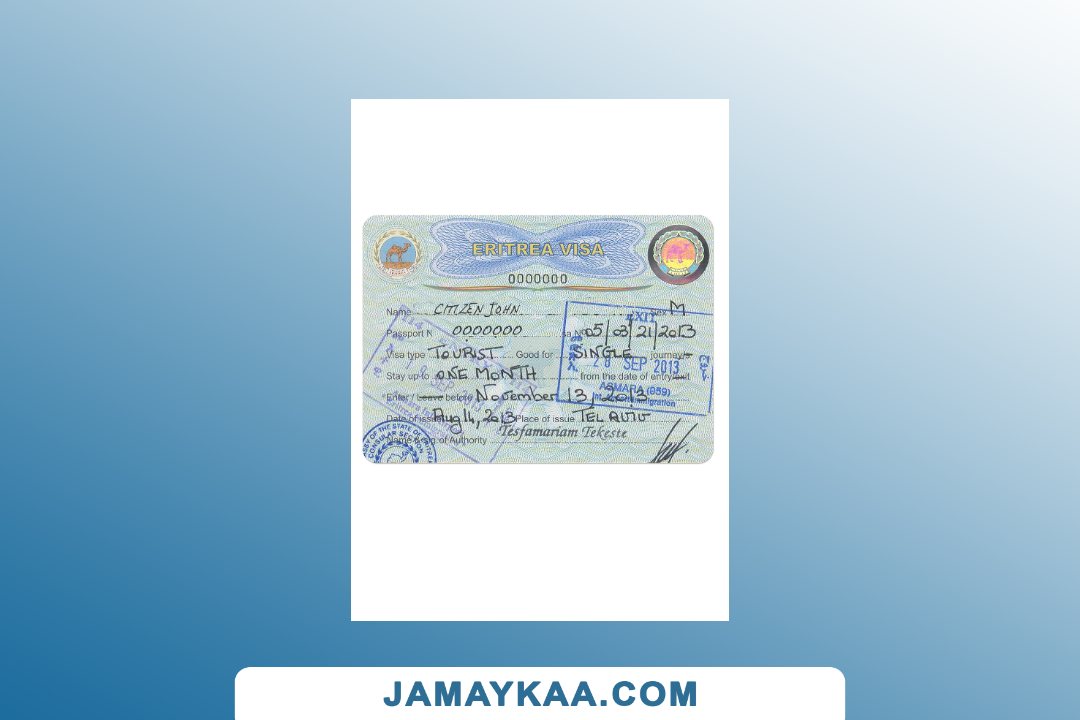 ERITREA VISA
0000000
Name CITIZEN JOHN Sex M
Passport N 0000000 sa No 05/03/21/2013
Visa type TOURIST Good for SINGLE journey/s
Stay up to ONE MONTH from the date of entry/exit
Enter / Leave before November 13, 2013
Date of issue Aug 14, 2013 Place of issue TEL AVIV
Name & Sign of Authority Tesfamariam Tekeste
EXIT
28 SEP 2013
ASMARA (659)
SEP
OF THE STATE OF ERITREA
CONSULAR SECTION
JAMAYKAA.COM